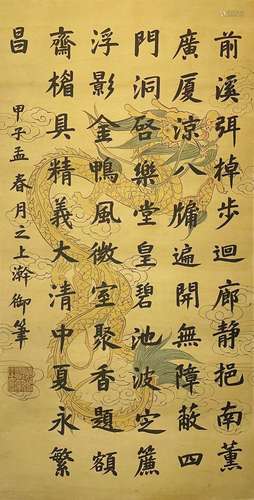 前溪弭棹步迴廊静挹南薰
廣厦涼八牖遍開無障蔽四
門洞啓樂堂皇碧池波定簾
浮影金鴨風微室聚香題額
齋楣具精義大清中夏永繁
昌
甲子孟春月之上澣御筆